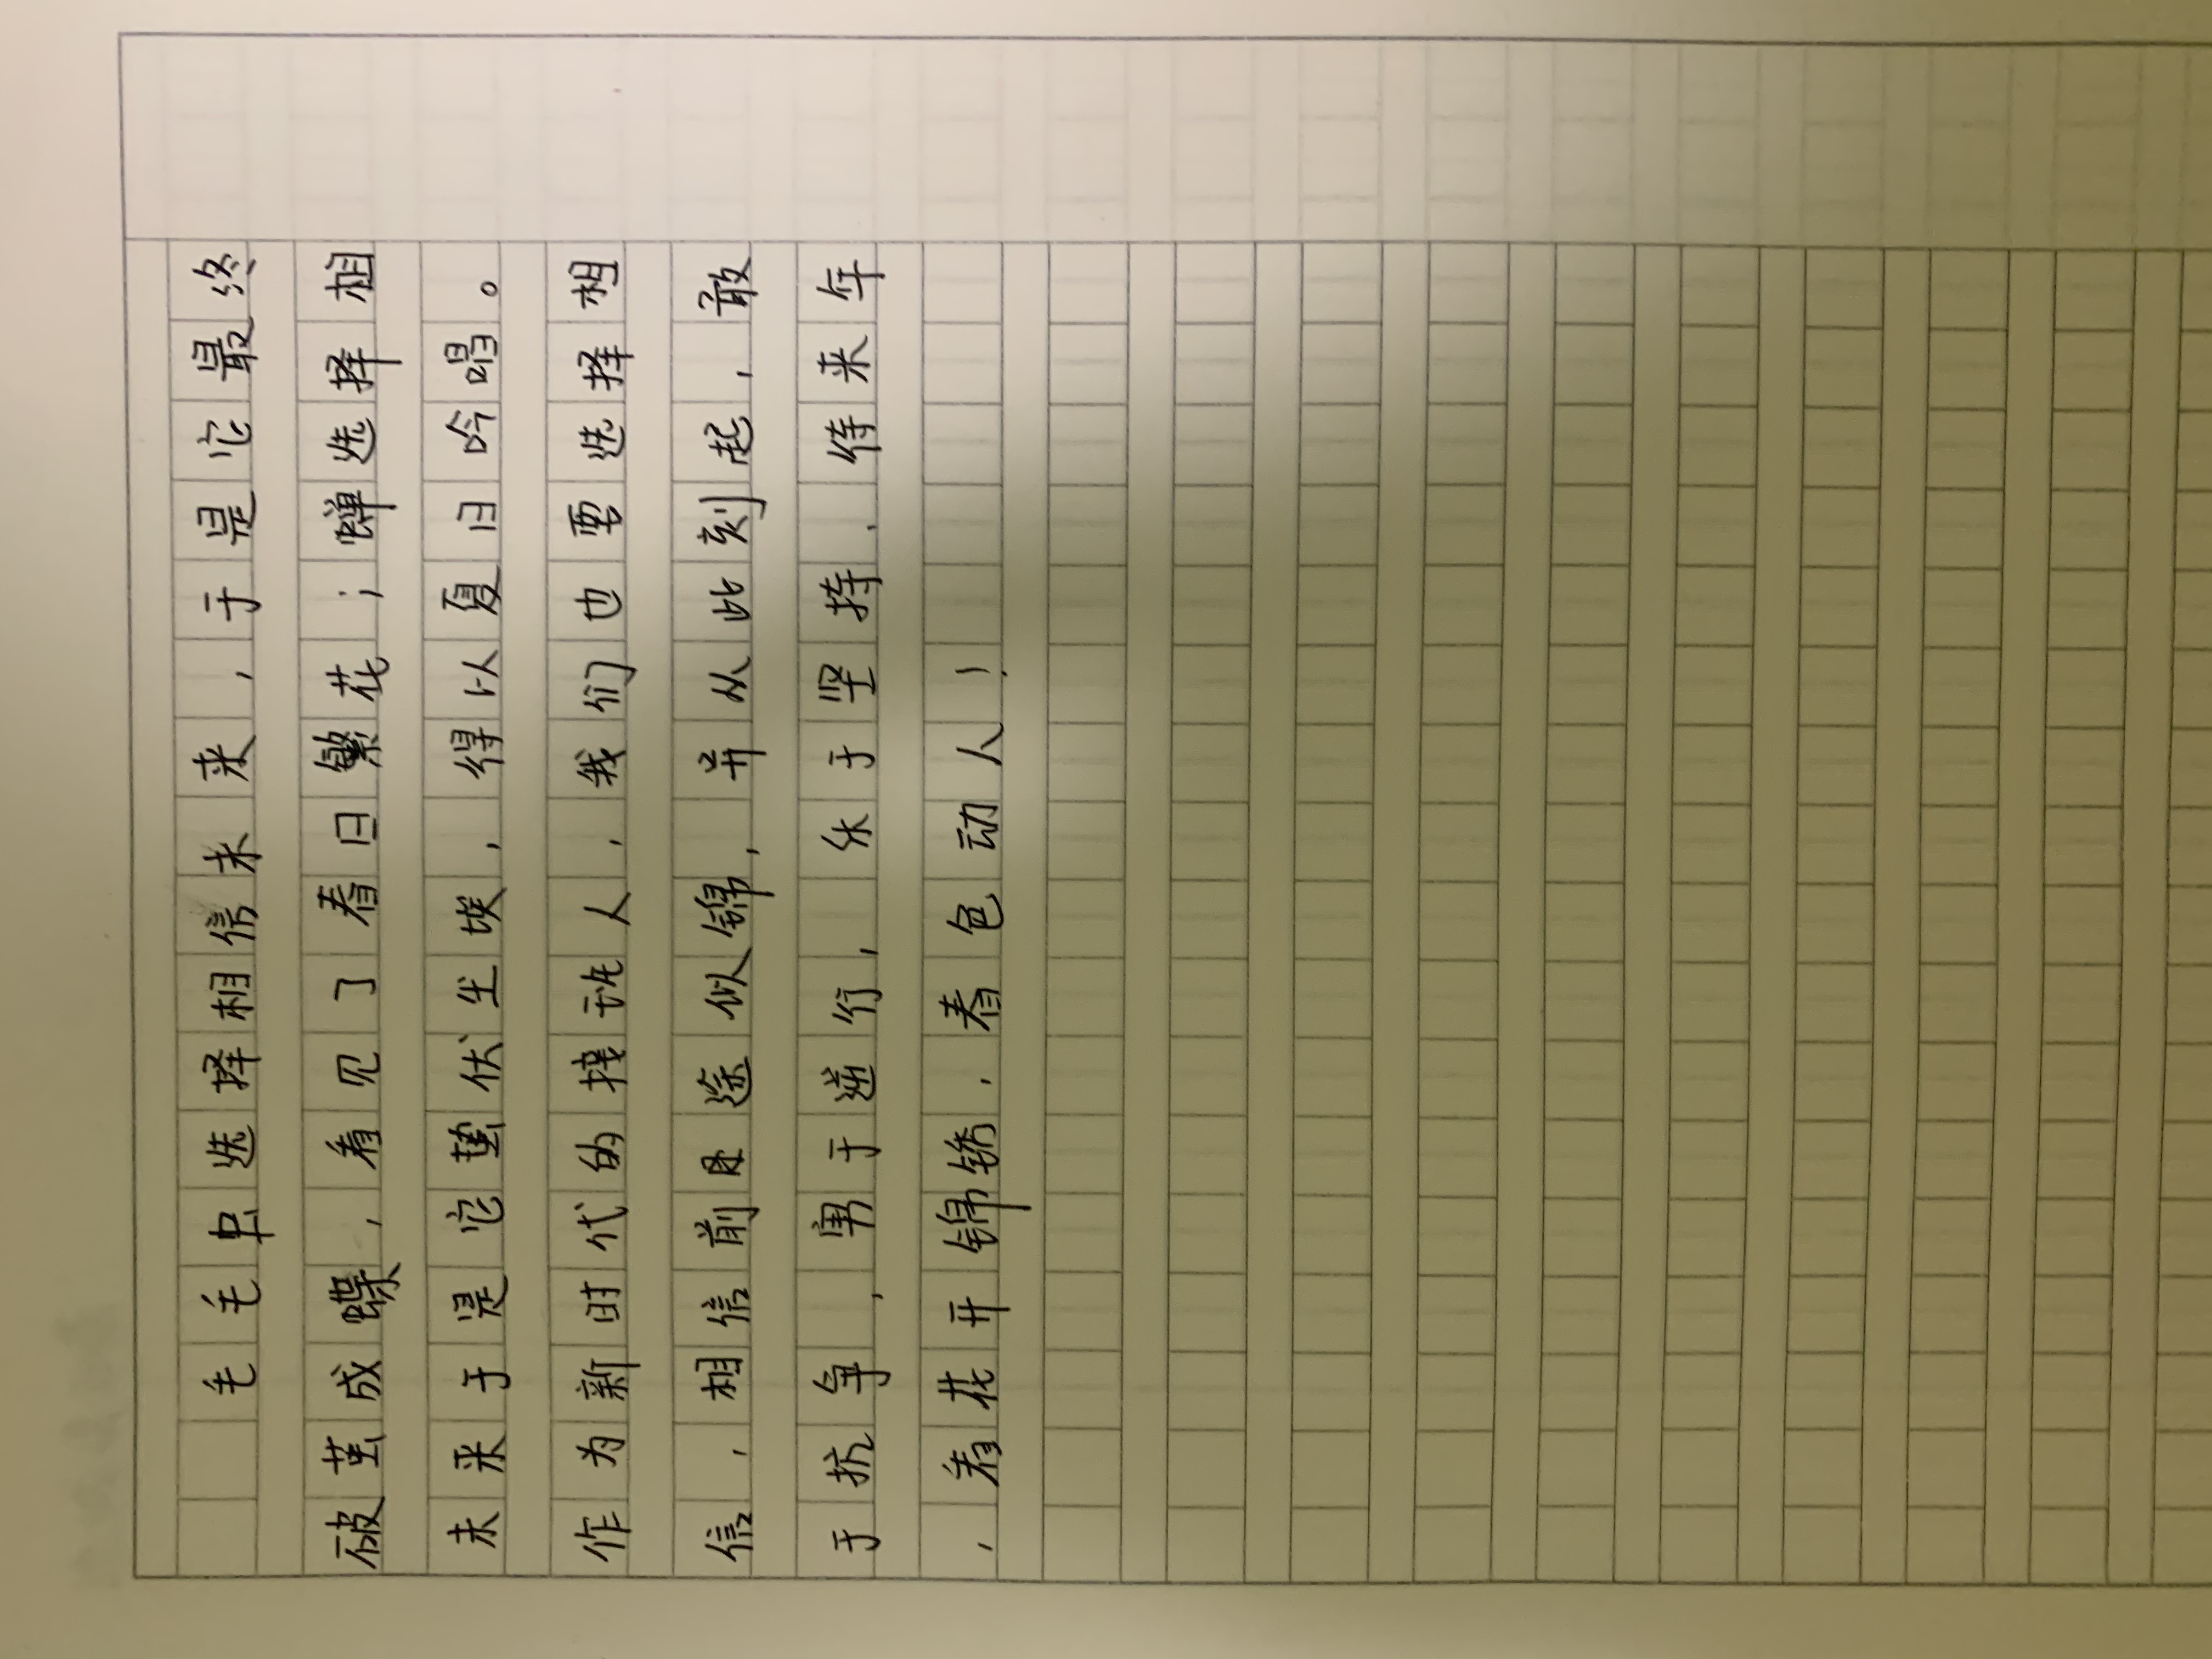 毛毛虫选择相信未来，于是它最终
破茧成蝶，看见了春日繁花；蝉选择相
未来于是它蛰伏尘埃，得以夏日吟唱。
作为新时代的接班人，我们也要选择相
信，相信前途似锦，并从此刻起，敢
于抗争，勇于逆行，乐于坚持，待来年
，看花开锦绣，春色动人！